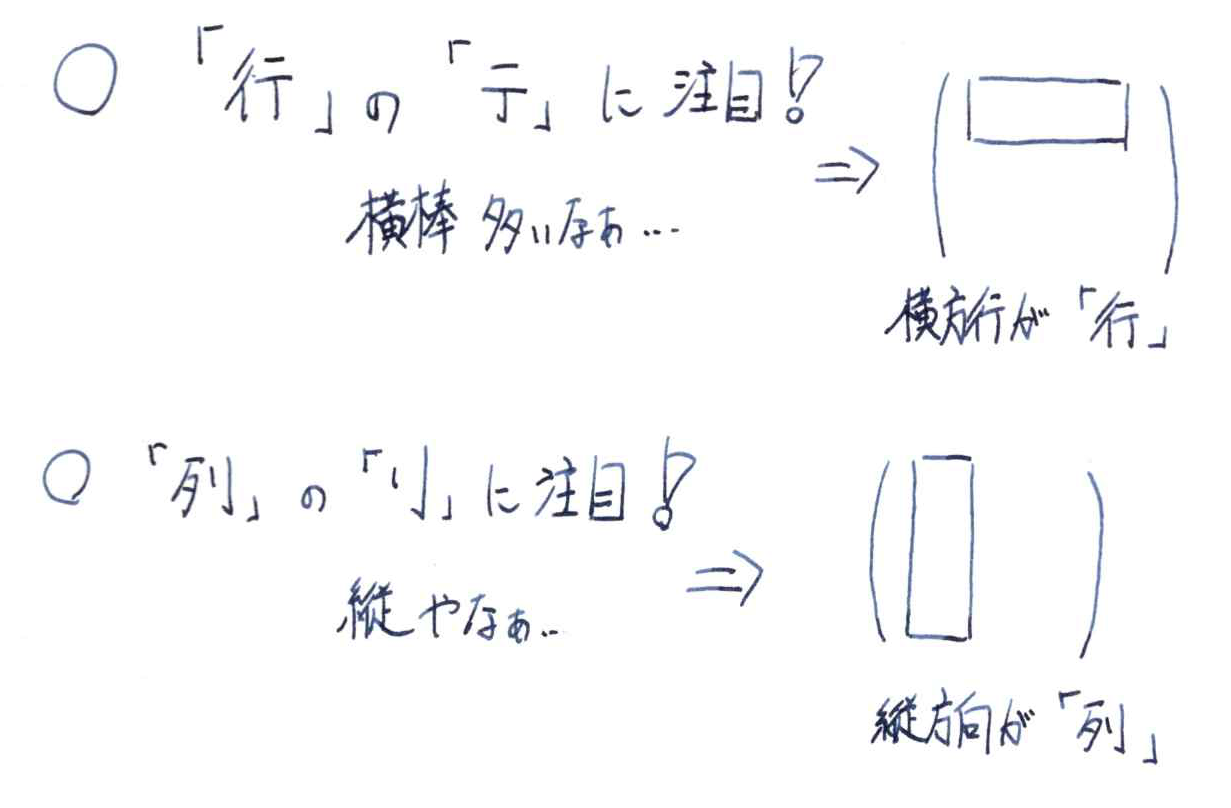 ○ 「行」の「亍」に注目!
横棒 多いなぁ…
⇒
横方行が「行」
○ 「列」の「刂」に注目!
縦やなぁ…
⇒
縦方向が「列」